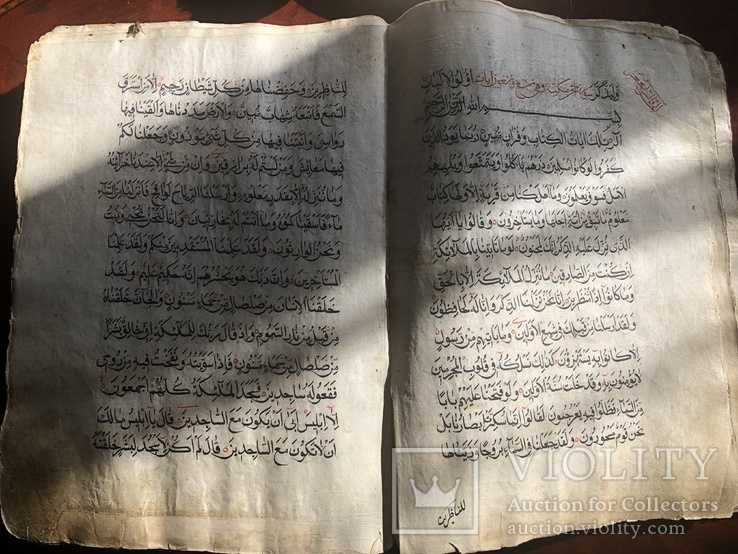 وليذكر سورة حجر مكية وهي تسع وتسعون ايات اولوا الالباب
بسم الله الرحمن الرحيم
الر تلك ايات الكتاب وقران مبين ربما يود الذين
كفروا لو كانوا مسلمين ذرهم ياكلوا ويتمتعوا ويلههم
الامل فسوف يعلمون وما اهلكنا من قرية الا ولها كتاب
معلوم ما تسبق من امة اجلها وما يستاخرون وقالوا يا ايها
الذي نزل عليه الذكر انك لمجنون لو ما تاتينا بالملائكة
ان كنت من الصادقين ما ننزل الملائكة الا بالحق
وما كانوا اذا منظرين انا نحن نزلنا الذكر وانا له لحافظون
ولقد ارسلنا من قبلك في شيع الاولين وما ياتيهم من رسول
الا كانوا به يستهزؤن كذلك نسلكه في قلوب المجرمين
لا يؤمنون به وقد خلت سنة الاولين ولو فتحنا عليهم بابا
من السماء فظلوا فيه يعرجون لقالوا انما سكرت ابصارنا بل
نحن قوم مسحورون ولقد جعلنا في السماء بروجا وزيناها
للناظرين
للناظرين وحفظناها من كل شيطان رجيم الا من استرق
السمع فاتبعه شهاب مبين والارض مددناها والقينا فيها
رواسي وانبتنا فيها من كل شيء موزون وجعلنا لكم
فيها معايش ومن لستم له برازقين وان من شيء الا عندنا خزائنه
وما ننزله الا بقدر معلوم وارسلنا الرياح لواقح فانزلنا من السماء
ماء فاسقيناكموه وما انتم له بخازنين وانا لنحن نحيي ونميت
ونحن الوارثون ولقد علمنا المستقدمين منكم ولقد علمنا
المستاخرين وان ربك هو يحشرهم انه حكيم عليم ولقد
خلقنا الانسان من صلصال من حماء مسنون والجان خلقناه
من قبل من نار السموم واذ قال ربك للملائكة اني خالق بشرا
من صلصال من حماء مسنون فاذا سويته ونفخت فيه من روحي
فقعوا له ساجدين فسجد الملائكة كلهم اجمعون
الا ابليس ابى ان يكون مع الساجدين قال يا ابليس مالك
ان لا تكون مع الساجدين قال لم اكن لاسجد لبشر خلقته
VIOLITY
Auction for Collectors
auction.violity.com